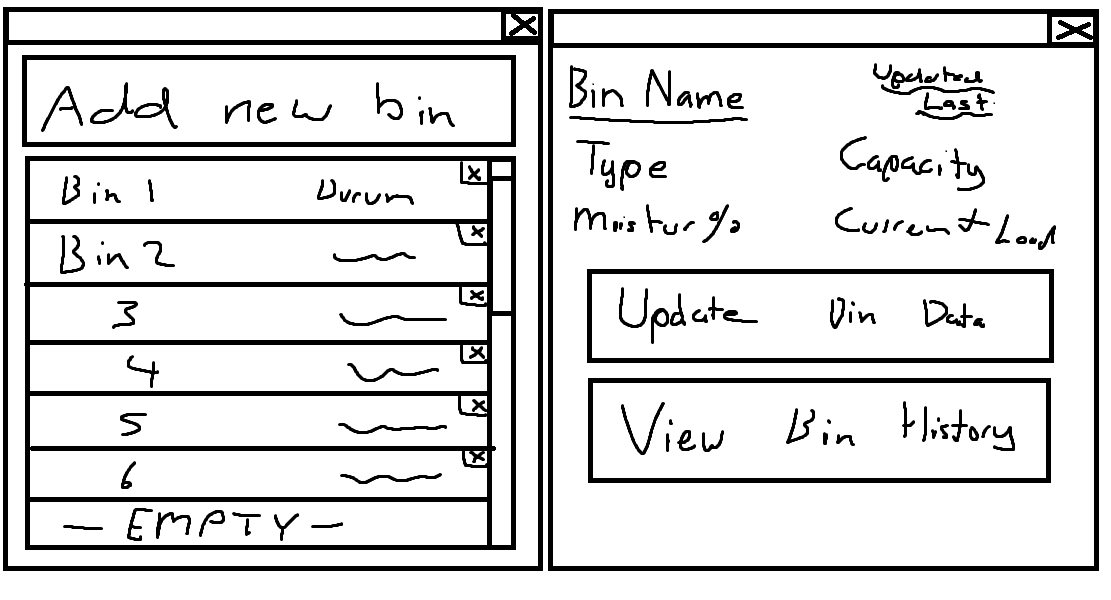 Add new bin
Bin 1 Durum
Bin 2
3
4
5
6
- EMPTY -
Bin Name
Updated
Last
Type
Capacity
Moistur %
Current Load
Update Bin Data
View Bin History